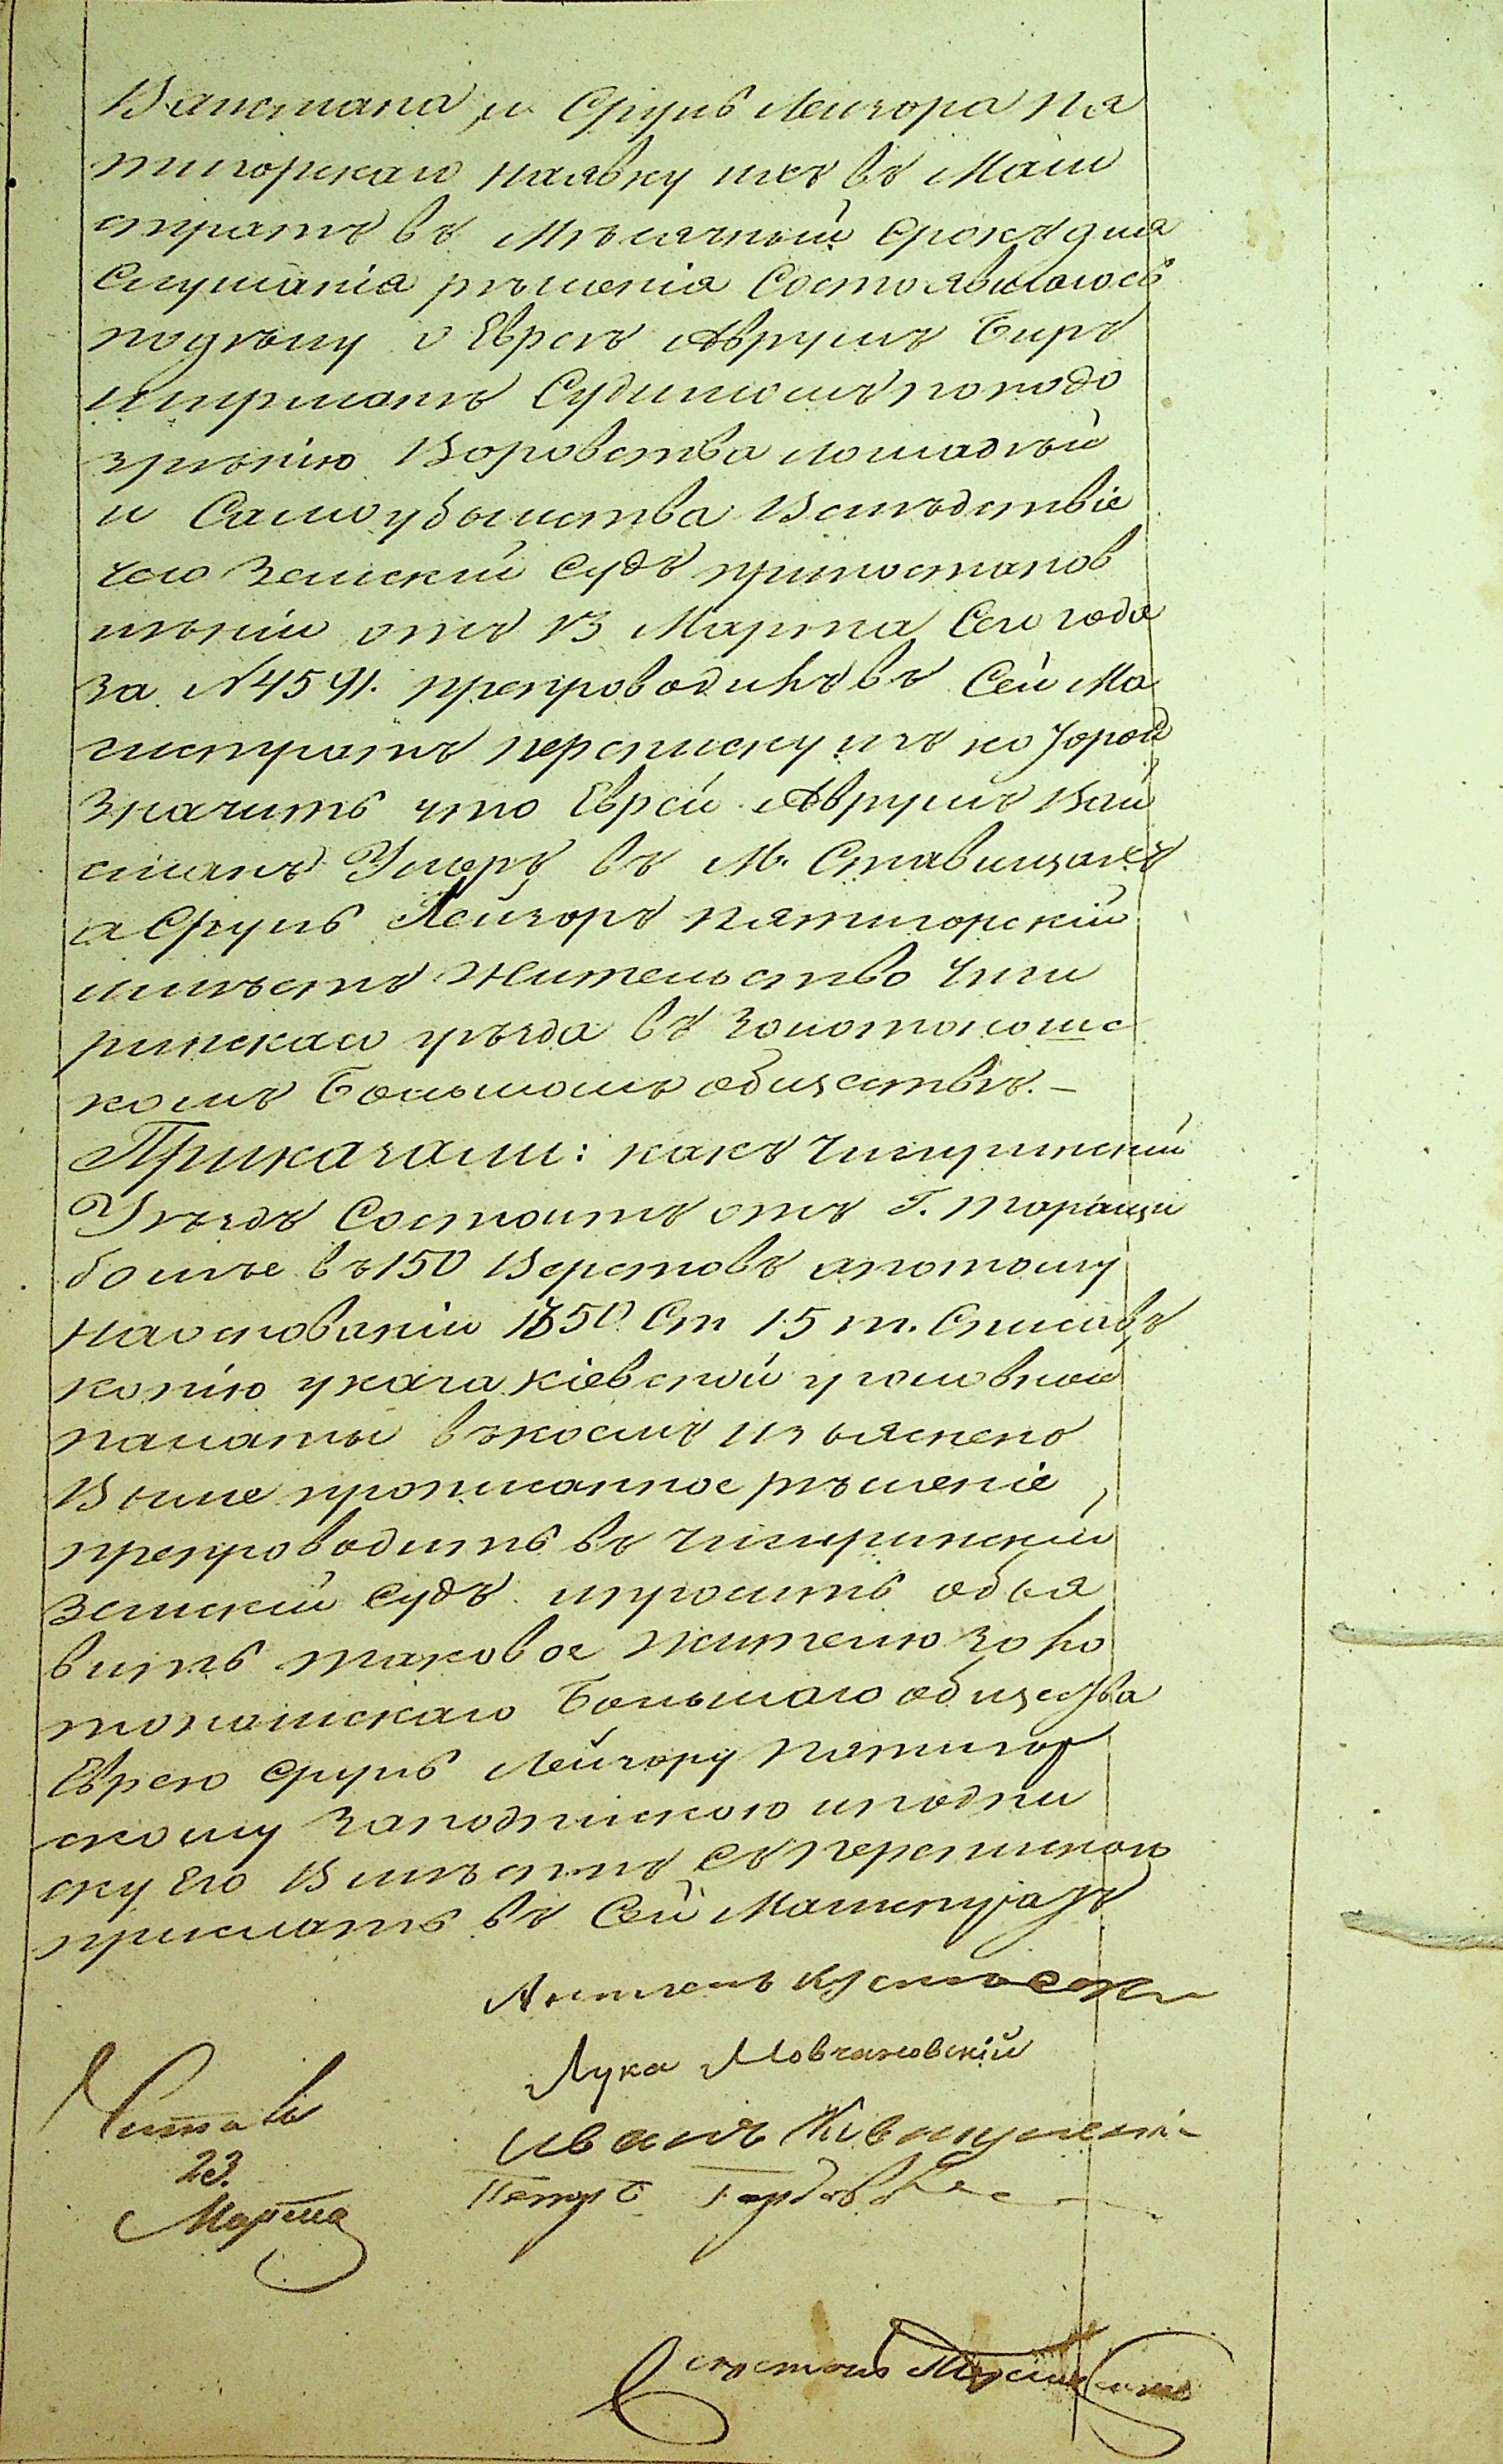 Вайсмана, и Сруль Лейзора Пя
тигорскаго наявку ихъ въ Маги
стратъ въ Мѣсячный срокъ для
Слушанія рѣшенія Состоявшагось
подѣлу о Евреѣ Аврумѣ Бир
штрманѣ Судимомъ поподо
зрѣнію Воровства лошадѣй
и Самоубыйства Вслѣдствіе
чего Земскій Судъ приостанов
лѣніи отъ 13 Марта Сего года
за N4591. препроводилъ въ Сей Ма
гистратъ переписку изъ которой
Значитъ что Еврей Аврумъ Вай
сманъ Умеръ въ М. Ставищахъ
а Сруль Лейзоръ Пятигорскій
имѣетъ Жительство Чиги
ринскаго уѣзда въ Золотонош
комъ Большомъ обществѣ.—
Приказали: какъ Чигиринскій
Уѣздъ Состоитъ отъ Г. Таращи
болѣе въ 150 Верстовъ апотому
Наоснованіи 1350 Ст 15 т. Списавъ
копію указа кіевской уголовной
палаты въ коемъ изъяснено
Выше прописанное рѣшеніе
препроводить въ Чигиринскій
Земскій Судъ ипросить объя
вить таковое Жителю Золо
тоношскаго Большаго общества
Еврею Сруль Лейзору Пятигор
скому Заподпискою иподпи
ску Его Вмѣстѣ съ перепискою
прислать въ Сей Магистратъ
Лука Мовчановскій
Иванъ
Петръ
Читалъ
23.
Марта